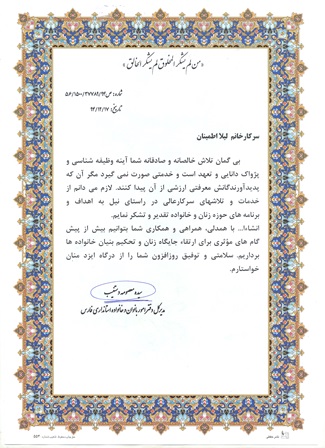 «من لم یشکر المخلوق لم یشکر الخالق»
تاریخ: ۹۴/۱۲/۱۷
سرکار خانم لیلا اطمینان
بی گمان تلاش خالصانه و صادقانه شما آینه وظیفه شناسی و
پژواک دانایی و تعهد است و خدمتی صورت نمی گیرد مگر آن که
پدیدآورندگانش معرفتی ارزشی از آن پیدا کنند. لازم می دانم از
خدمات و تلاشهای سرکارعالی در راستای نیل به اهداف و
برنامه های حوزه زنان و خانواده تقدیر و تشکر نمایم.
انشاءا... با همدلی، همراهی و همکاری شما بتوانیم بیش از پیش
گام های مؤثری برای ارتقاء جایگاه زنان و تحکیم بنیان خانواده ها
برداریم. سلامتی و توفیق روزافزون شما را از درگاه ایزد منان
خواستارم.
سیده معصومه
مدیرکل دفتر امور بانوان و خانواده استانداری فارس